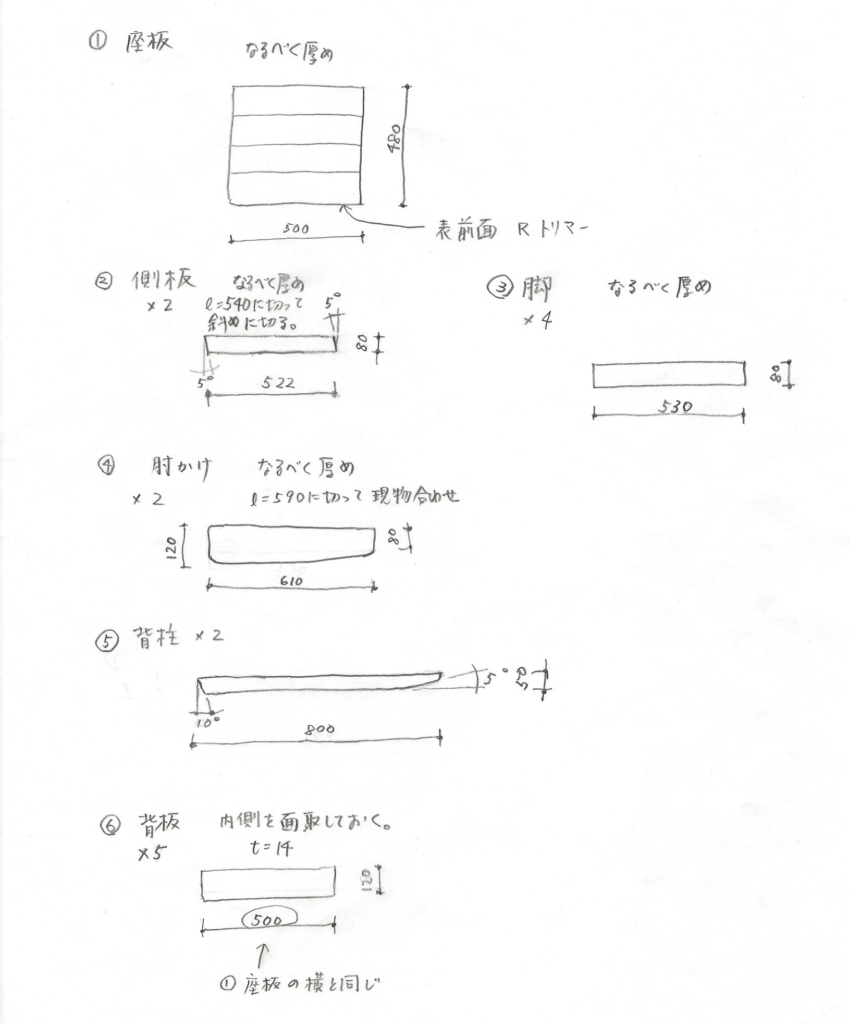 ① 座板 なるべく厚め
480
500
表前面 R トリマー
② 側板 なるべく厚め
×2 l=540に切って 5°
斜めに切る。
80
5°
522
③ 脚 なるべく厚め
×4
80
530
④ 肘かけ なるべく厚め
×2 l=590に切って現物合わせ
120
80
610
⑤ 背柱 ×2
5°
10°
800
⑥ 背板 内側を面取しておく。
×5 t=14
120
500
① 座板の横と同じ